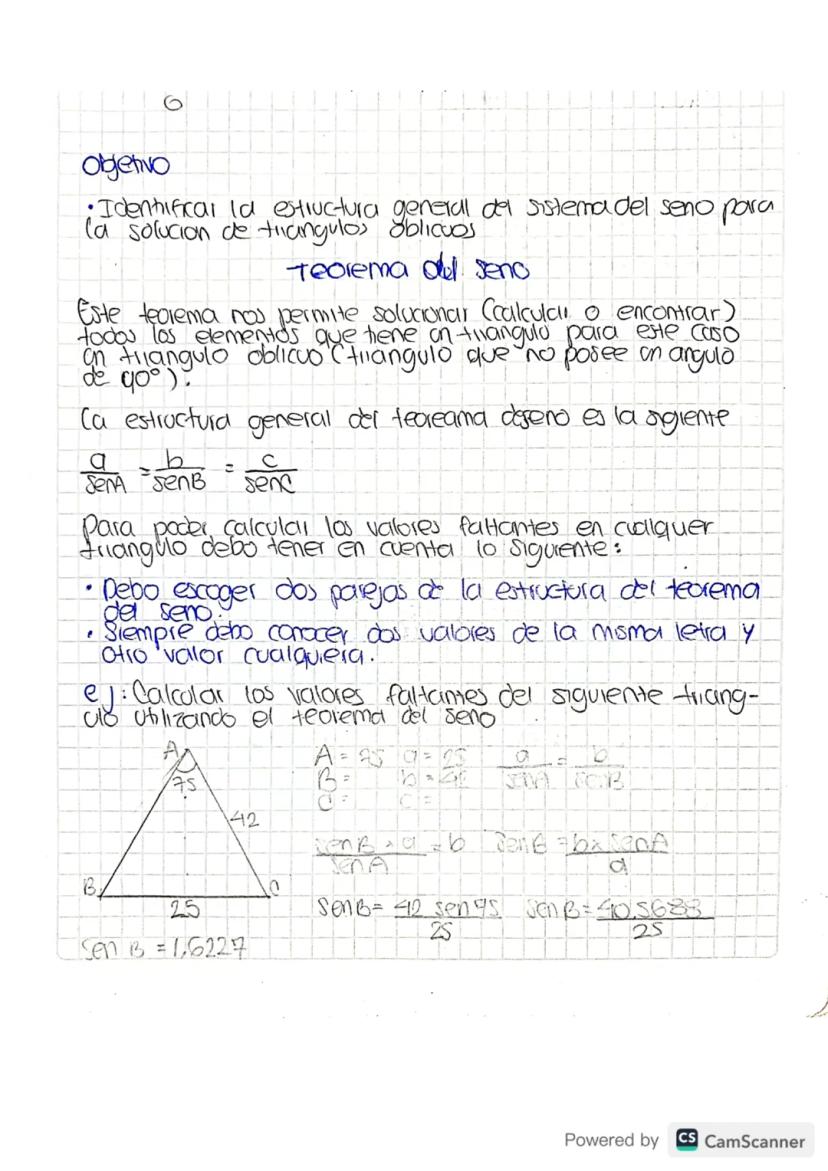 6
Objetivo
• Identificar la estructura general del sistema del seno para
la solucion de triangulos oblicuos
Teorema del seno
Este teorema nos permite solucionar (calcular o encontrar)
todos los elementos que tiene un triangulo para este caso
un triangulo oblicuo (triangulo que no posee un angulo
de 90°).
La estructura general del teoreama deseno es la sigiente
a/senA = b/senB = c/senC
Para poder calcular los valores faltantes en cualquer
triangulo debo tener en cuenta lo siguiente:
• Debo escoger dos parejas de la estructura del teorema
del seno.
• Siempre debo conocer dos valores de la misma letra y
otro valor cualquiera.
ej: Calcular los valores faltantes del siguiente triang-
ulo utilizando el teorema del seno
A
75
42
B
C
25
A = 75 a = 25 a/senA = b/senB
B = b = 42
C = c =
senB × a/senA = b senB = b × senA/a
senB = 42 sen75/25 senB = 40,5688/25
sen B = 1,6227
Powered by CS CamScanner